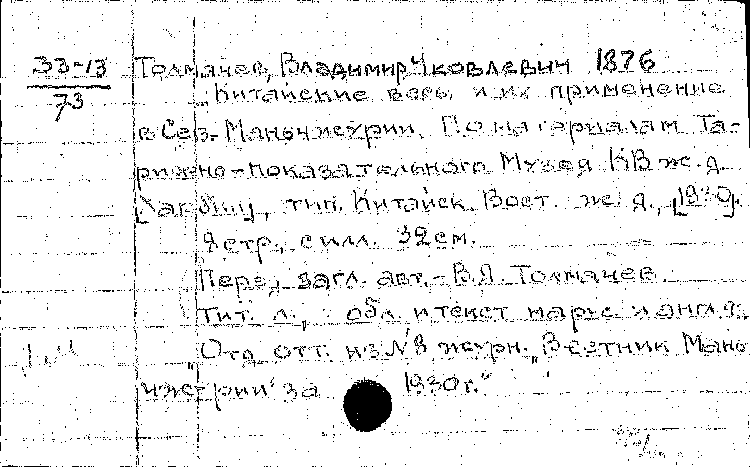 33-13
73
Толмачев, Владимир Яковлевич 1876
Китайские весы и их применение
в Сев. Маньчжурии. По материалам Та-
рижно-показательного Музея КВж.д.
[Харбин], тип. Китайск. Вост. ж. д., [1930].
9 стр., с илл. 32 см.
Перед загл. авт.-В.Я. Толмачев
Тит. л., обл. и текст на рус. и англ. яз.
Отд. отт. из №8 журн. „Вестник Мань
чжурии" за 1930г."